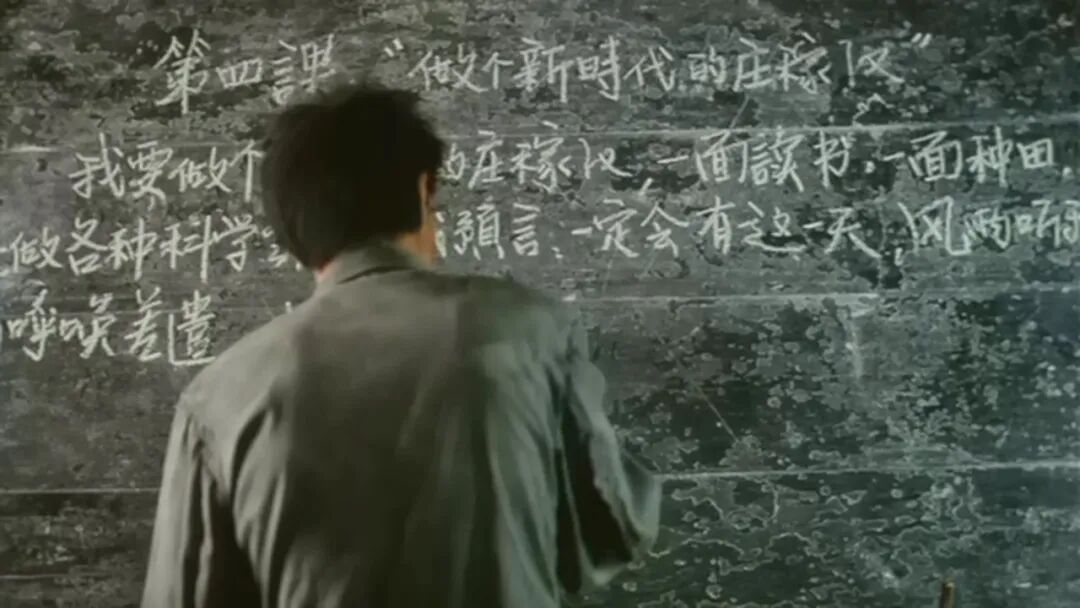 第四課 “做个新時代的庄稼汉”
我要做个 的庄稼汉,一面讀书,一面种田,
做各种科学 預言,一定会有这一天,风雨听
呼喚差遣